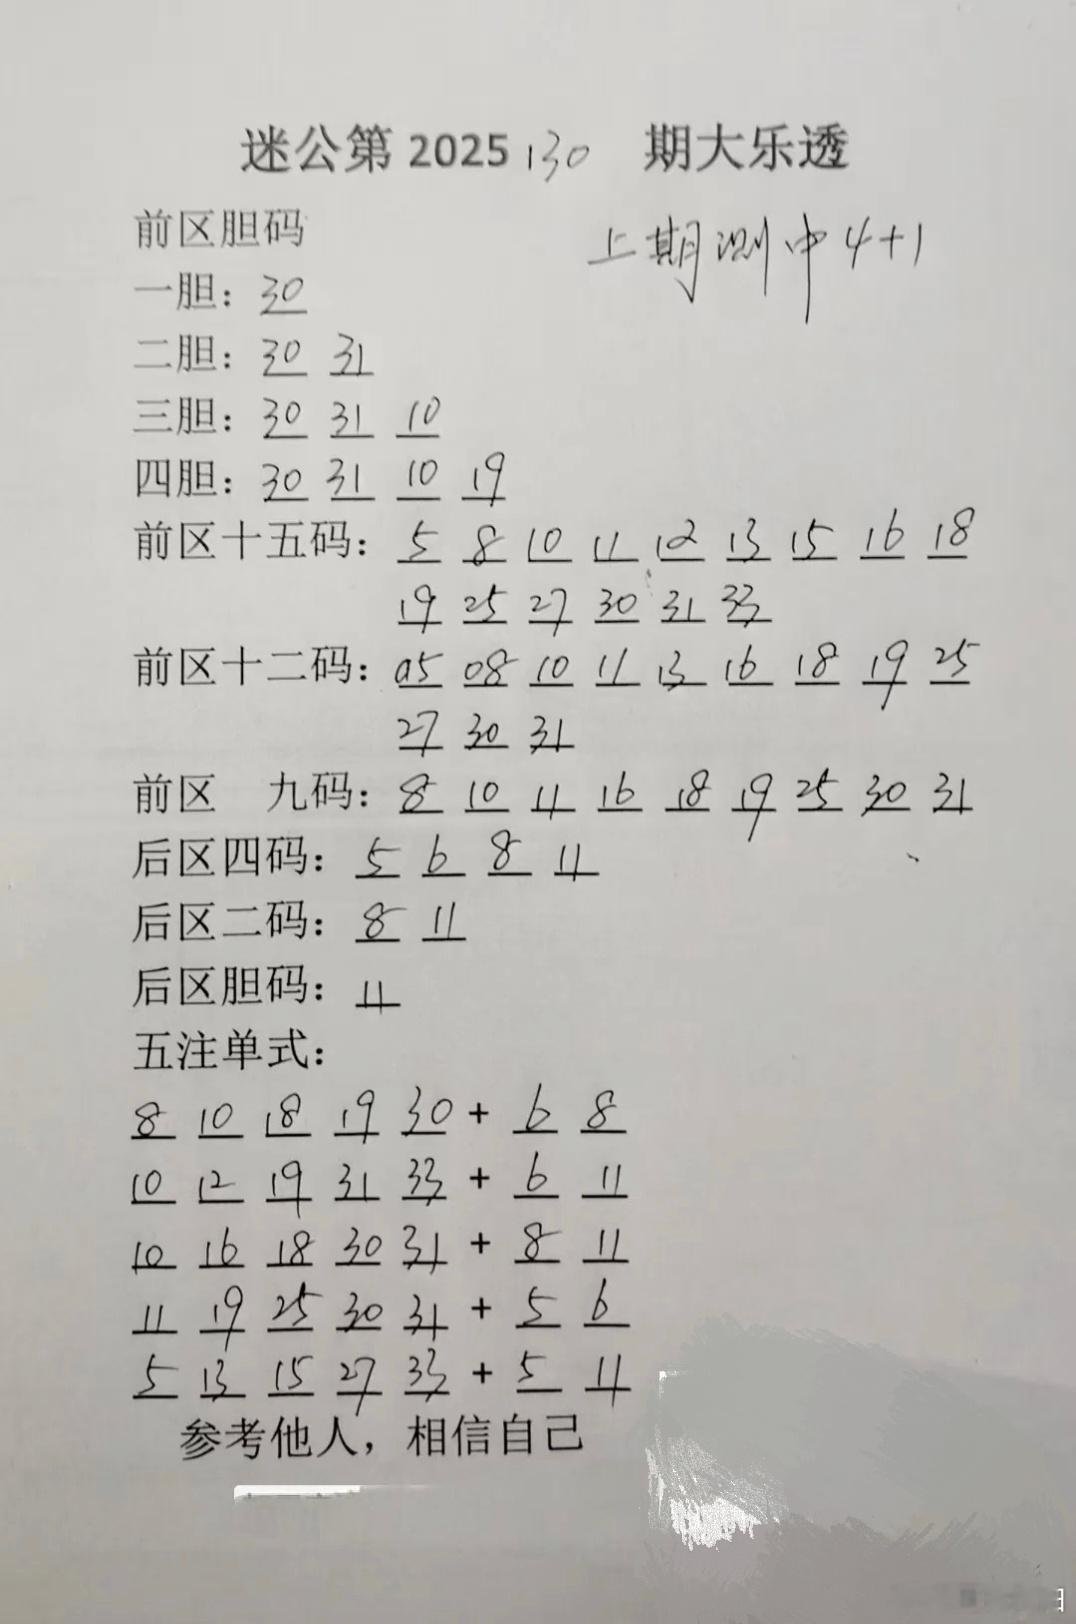 迷公第 2025 130 期大乐透
前区胆码
上期测中 4+1
一胆：30
二胆：30 31
三胆：30 31 10
四胆：30 31 10 19
前区十五码：5 8 10 11 12 13 15 16 18
19 25 27 30 31 33
前区十二码：05 08 10 11 13 16 18 19 25
27 30 31
前区 九码：8 10 11 16 18 19 25 30 31
后区四码：5 6 8 11
后区二码：8 11
后区胆码：11
五注单式：
8 10 18 19 30 + 6 8
10 12 19 31 33 + 6 11
10 16 18 30 31 + 8 11
11 19 25 30 31 + 5 6
5 13 15 27 33 + 5 11
参考他人，相信自己